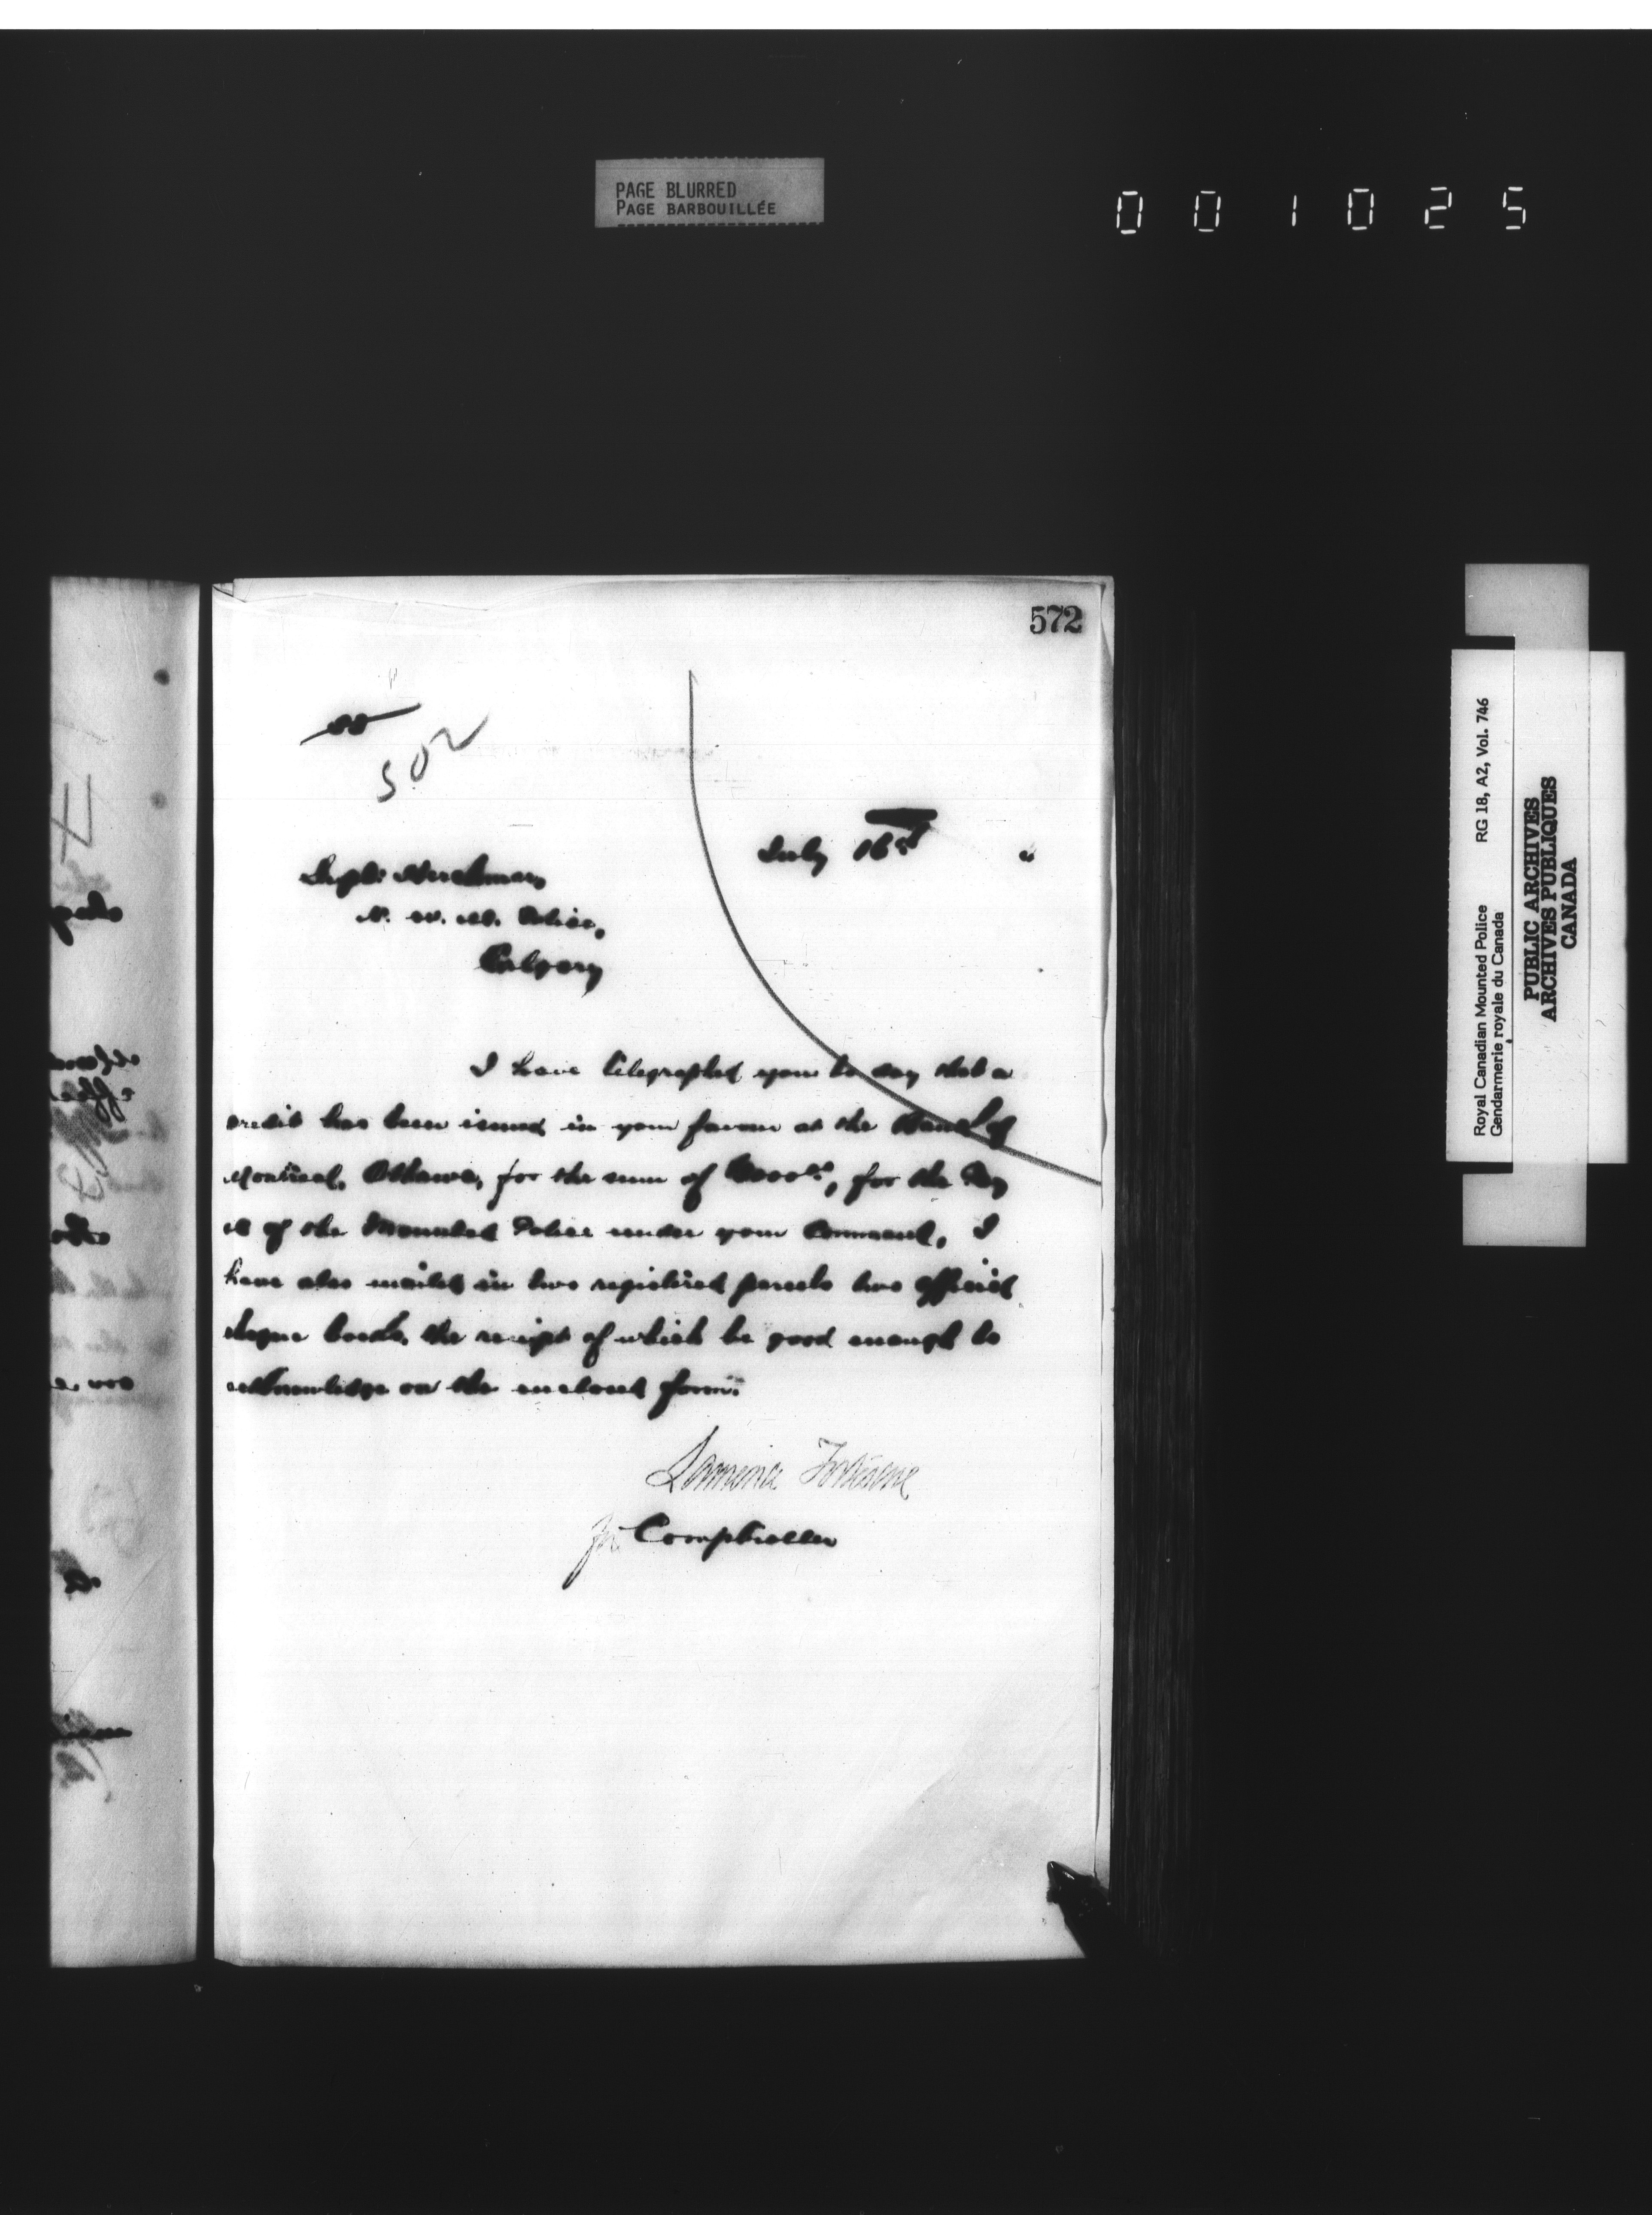 PAGE BLURRED
PAGE BARBOUILLÉE
0 0 1 0 2 5
572
502
July 16
Supt: Herchmer,
N. W. M. Police,
Calgary
I have telegraphed you to day that a
credit has been issued in your favour at the Bank of
Montreal, Ottawa, for the sum of for the Pay
of the Mounted Police under your Command. I
have also mailed in two registered parcels two official
cheque books, the receipt of which be good enough to
acknowledge on the enclosed form.
Fortescue
for Comptroller
Royal Canadian Mounted Police RG 18, A2, Vol. 746
Gendarmerie royale du Canada
PUBLIC ARCHIVES
ARCHIVES PUBLIQUES
CANADA